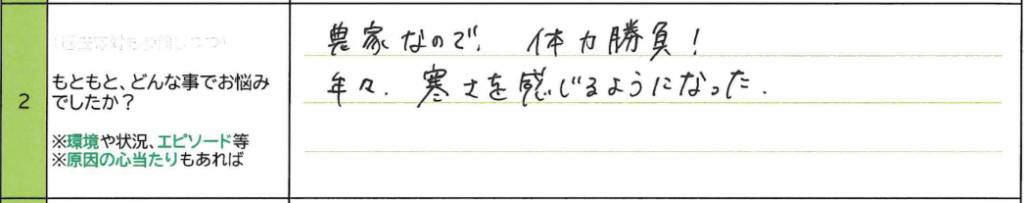 2
もともと、どんな事でお悩み
でしたか？
※環境や状況、エピソード等
※原因の心当たりもあれば
農家なので、体力勝負！
年々、寒さを感じるようになった.